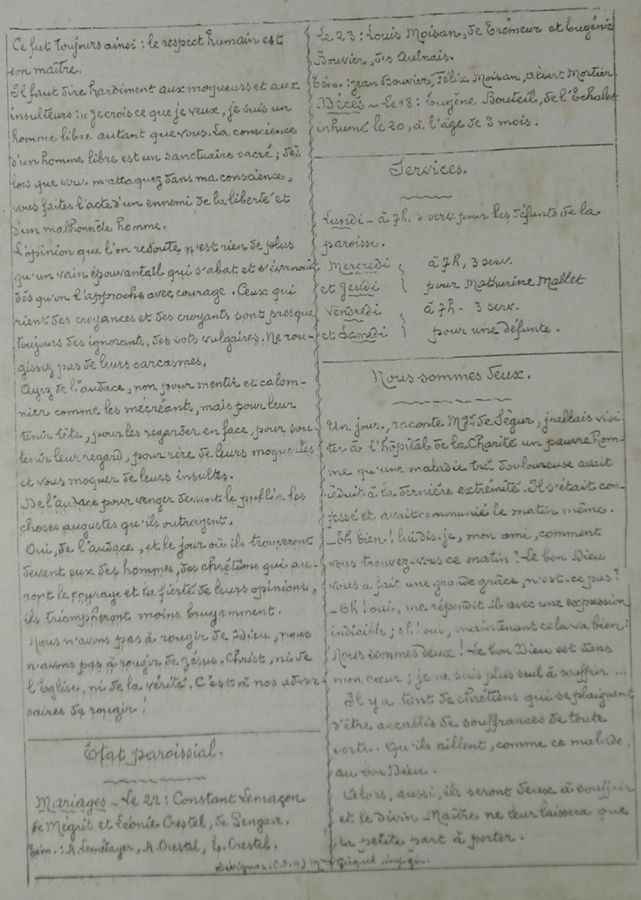 Ce fut toujours ainsi : le respect humain est
son maître.
Il faut dire hardiment aux moqueurs et aux
insulteurs : « je crois ce que je veux, je suis un
homme libre autant que vous. La conscience
d'un homme libre est un sanctuaire sacré ; dès
lors que vous m'attaquez dans ma conscience,
vous faites l'acte d'un ennemi de la liberté et
d'un malhonnête homme.
L'opinion que l'on redoute n'est rien de plus
qu'un vain épouvantail qui s'abat et s'évanouit
dès qu'on l'approche avec courage. Ceux qui
rient des croyances et des croyants sont presque
toujours des ignorants, des sots vulgaires. Ne rou-
gissez pas de leurs sarcasmes.
Ayez de l'audace, non pour mentir et calom-
nier comme les mécréants, mais pour leur
tenir tête, pour les regarder en face, pour sou-
tenir leur regard, pour rire de leurs moqueries
et vous moquer de leurs insultes.
De l'audace pour venger devant le public les
choses augustes qu'ils outragent.
Oui, de l'audace, et le jour où ils trouveront
devant eux des hommes, des chrétiens qui au-
ront le courage et la fierté de leurs opinions,
ils triompheront moins bruyamment.
Nous n'avons pas à rougir de Dieu, nous
n'avons pas à rougir de Jésus-Christ, ni de
l'Eglise, ni de la vérité. C'est à nos adver-
saires de rougir !
Etat paroissial.
Mariages - Le 22 : Constant Lemaçon
de Mégrit et Léonie Orestel, de
Tém. : A. Lemétayer, A. Orestel, L. Orestel.
Le 23 : Louis Moisan, de Trémeur et Eugénie
Bouvier, des Aulnais.
Tém. : Jean Bouvier, Félix Moisan, Albert Mortier
Décès - Le 18 : Eugène Bouteil, de l'Echalot
inhumé le 20, à l'âge de 3 mois.
Services.
Lundi - à 7h. 3 serv. pour les défunts de la
paroisse.
Mercredi } à 7h, 3 serv.
et Jeudi } pour Mathurine Mallet
Vendredi } à 7h - 3 serv.
et Samedi } pour une défunte.
Nous sommes deux.
Un jour, raconte Mgr. de Ségur, j'allais visi-
ter à l'hôpital de la Charité un pauvre hom-
me qu'une maladie très douloureuse avait
réduit à la dernière extrémité. Il s'était con-
fessé et avait communié le matin même.
- Eh bien ! lui dis-je, mon ami, comment
vous trouvez-vous ce matin ? Le bon Dieu
vous a fait une grande grâce, n'est-ce pas ?
- Oh ! oui, me répondit-il avec une expression
indicible ; oh ! oui, maintenant cela va bien :
Nous sommes deux ! Le bon Dieu est dans
mon cœur ; je ne suis plus seul à souffrir ...
Il y a tant de chrétiens qui se plaignent
d'être accablés de souffrances de toute
sorte. Qu'ils aillent, comme ce malade,
au bon Dieu.
Alors, aussi, ils seront deux à souffrir
et le Divin Maître ne leur laissera que
la petite part à porter.
Sévignac (C.D.N)